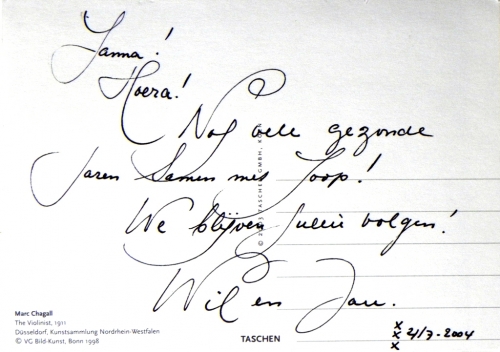 Janna!
Hoera!
Nog vele gezonde
Jaren Samen met Joop!
We blijven Jullie volgen!
Wil en Jan.
x
x 21/7-2004
x
Marc Chagall
The Violinist, 1911
Düsseldorf, Kunstsammlung Nordrhein-Westfalen
© VG Bild-Kunst, Bonn 1998
TASCHEN